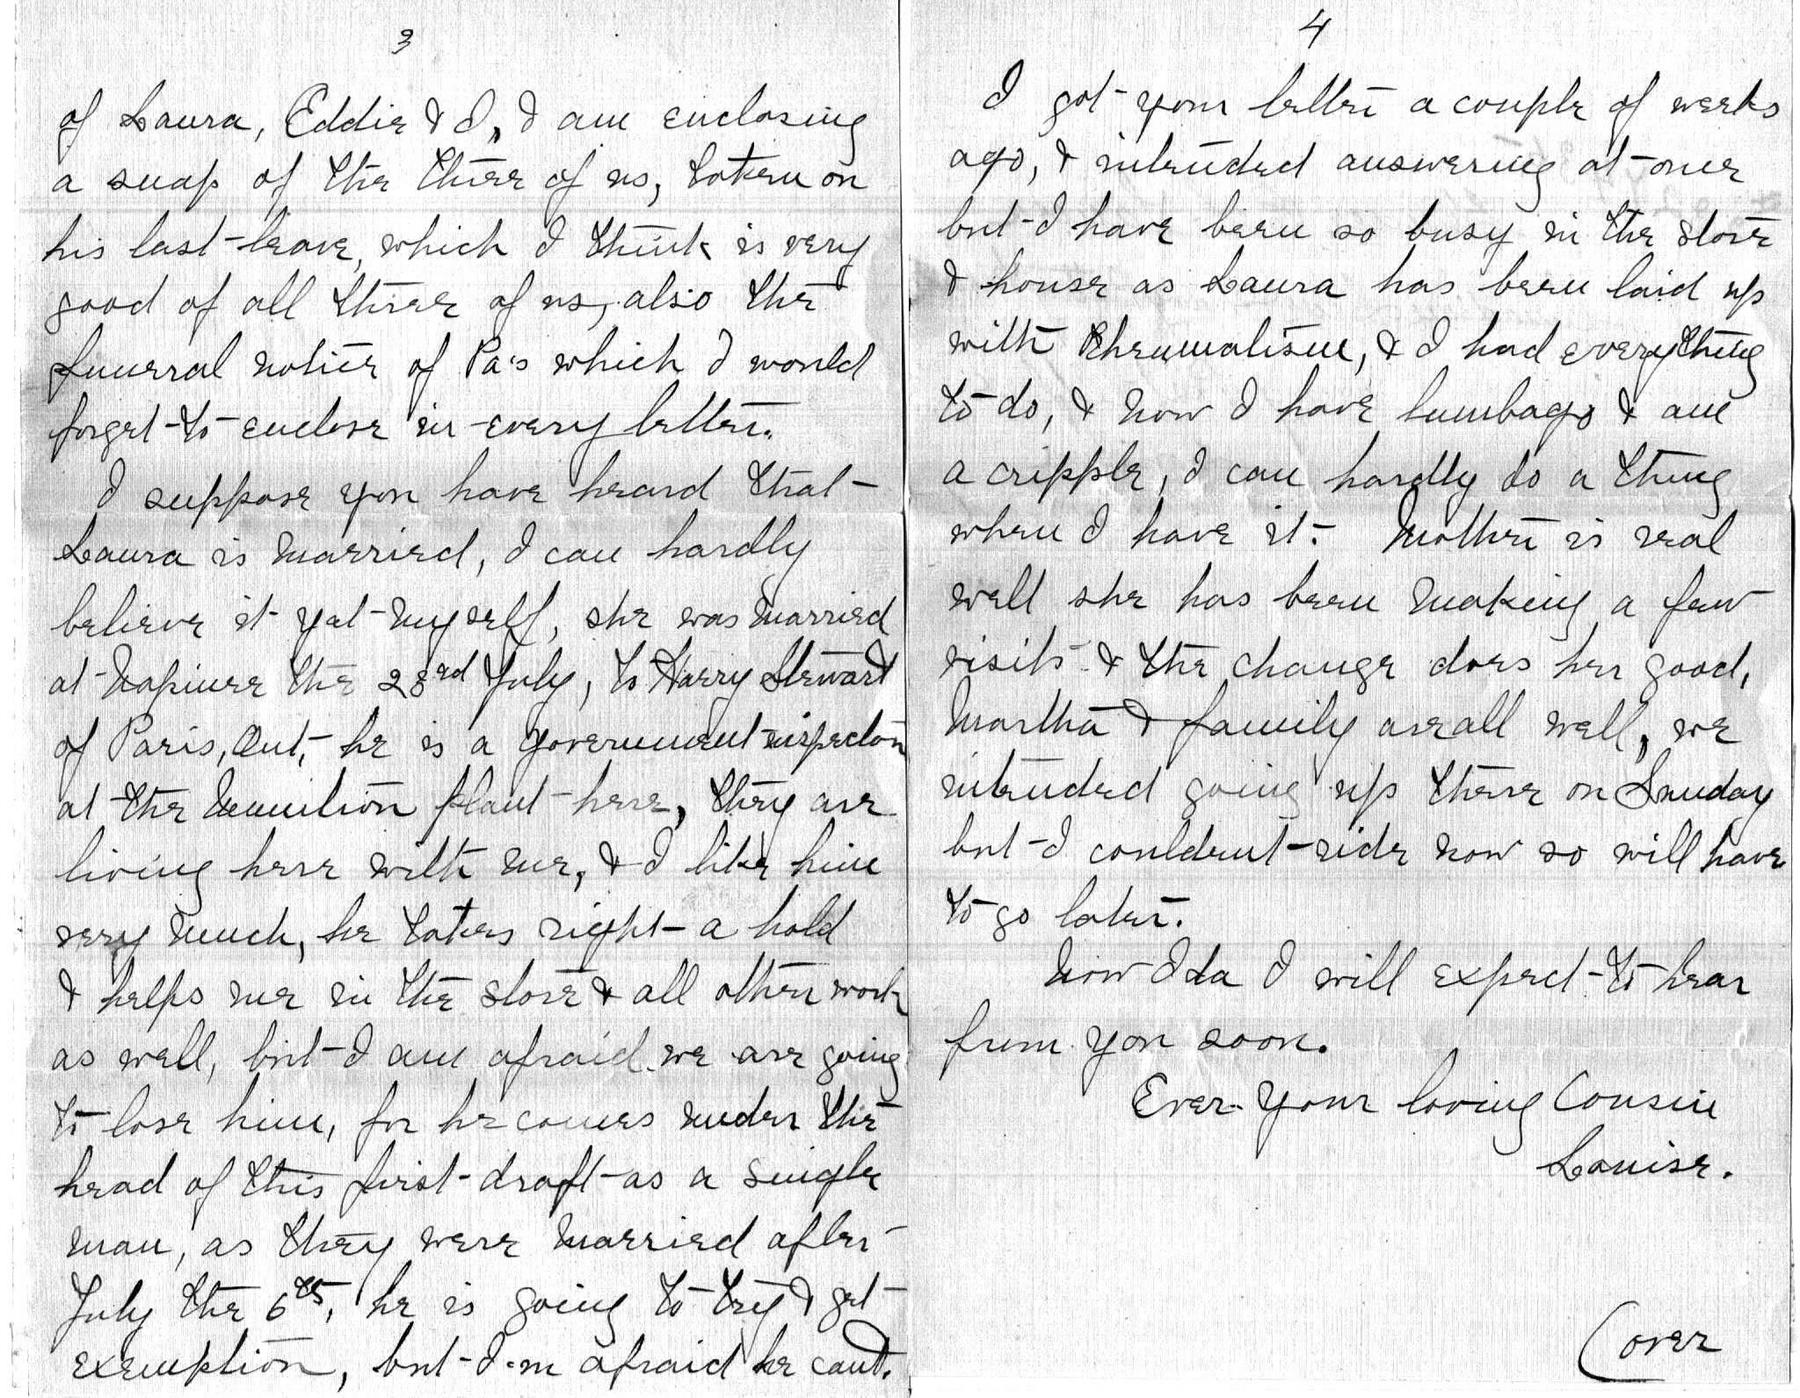 3
of Laura, Eddie & I, I am enclosing
a snap of the three of us, taken on
his last leave, which I think is very
good of all three of us, also the
funeral notice of Pa's which I would
forget to enclose in every letter.
I suppose you have heard that
Laura is married, I can hardly
believe it yet myself, she was married
at Napinee the 23rd July, to Harry Stewart
of Paris, Ont, he is a government inspector
at the Munition plant here, they are
living here with me, & I like him
very much, he takes right a hold
& helps me in the store & all other work
as well, but I am afraid we are going
to lose him, for he comes under the
head of this first draft as a single
man, as they were married after
July the 6th, he is going to try & get
exemption, but I'm afraid he cant.
4
I got your letter a couple of weeks
ago, & intended answering at once
but I have been so busy in the store
& house as Laura has been laid up
with Rheumatism, & I had everything
to do, & now I have lumbago & am
a cripple, I can hardly do a thing
when I have it. Mother is real
well she has been making a few
visits & the change does her good,
Martha & family are all well, we
intended going up there on Sunday
but I couldent ride now so will have
to go later.
Now Ida I will expect to hear
from you soon.
Ever your loving Cousin
Louise.
(over